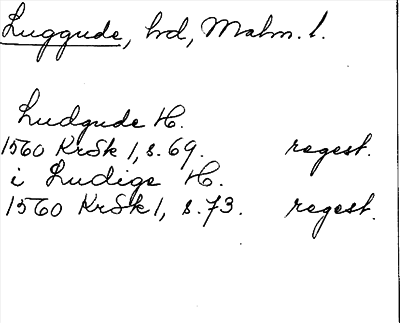 Luggude, hd, Malm. l.
Ludgude H.
1560 KrSk 1, s. 69. regest.
i Ludige H.
1560 KrSk 1, s. 73. regest.